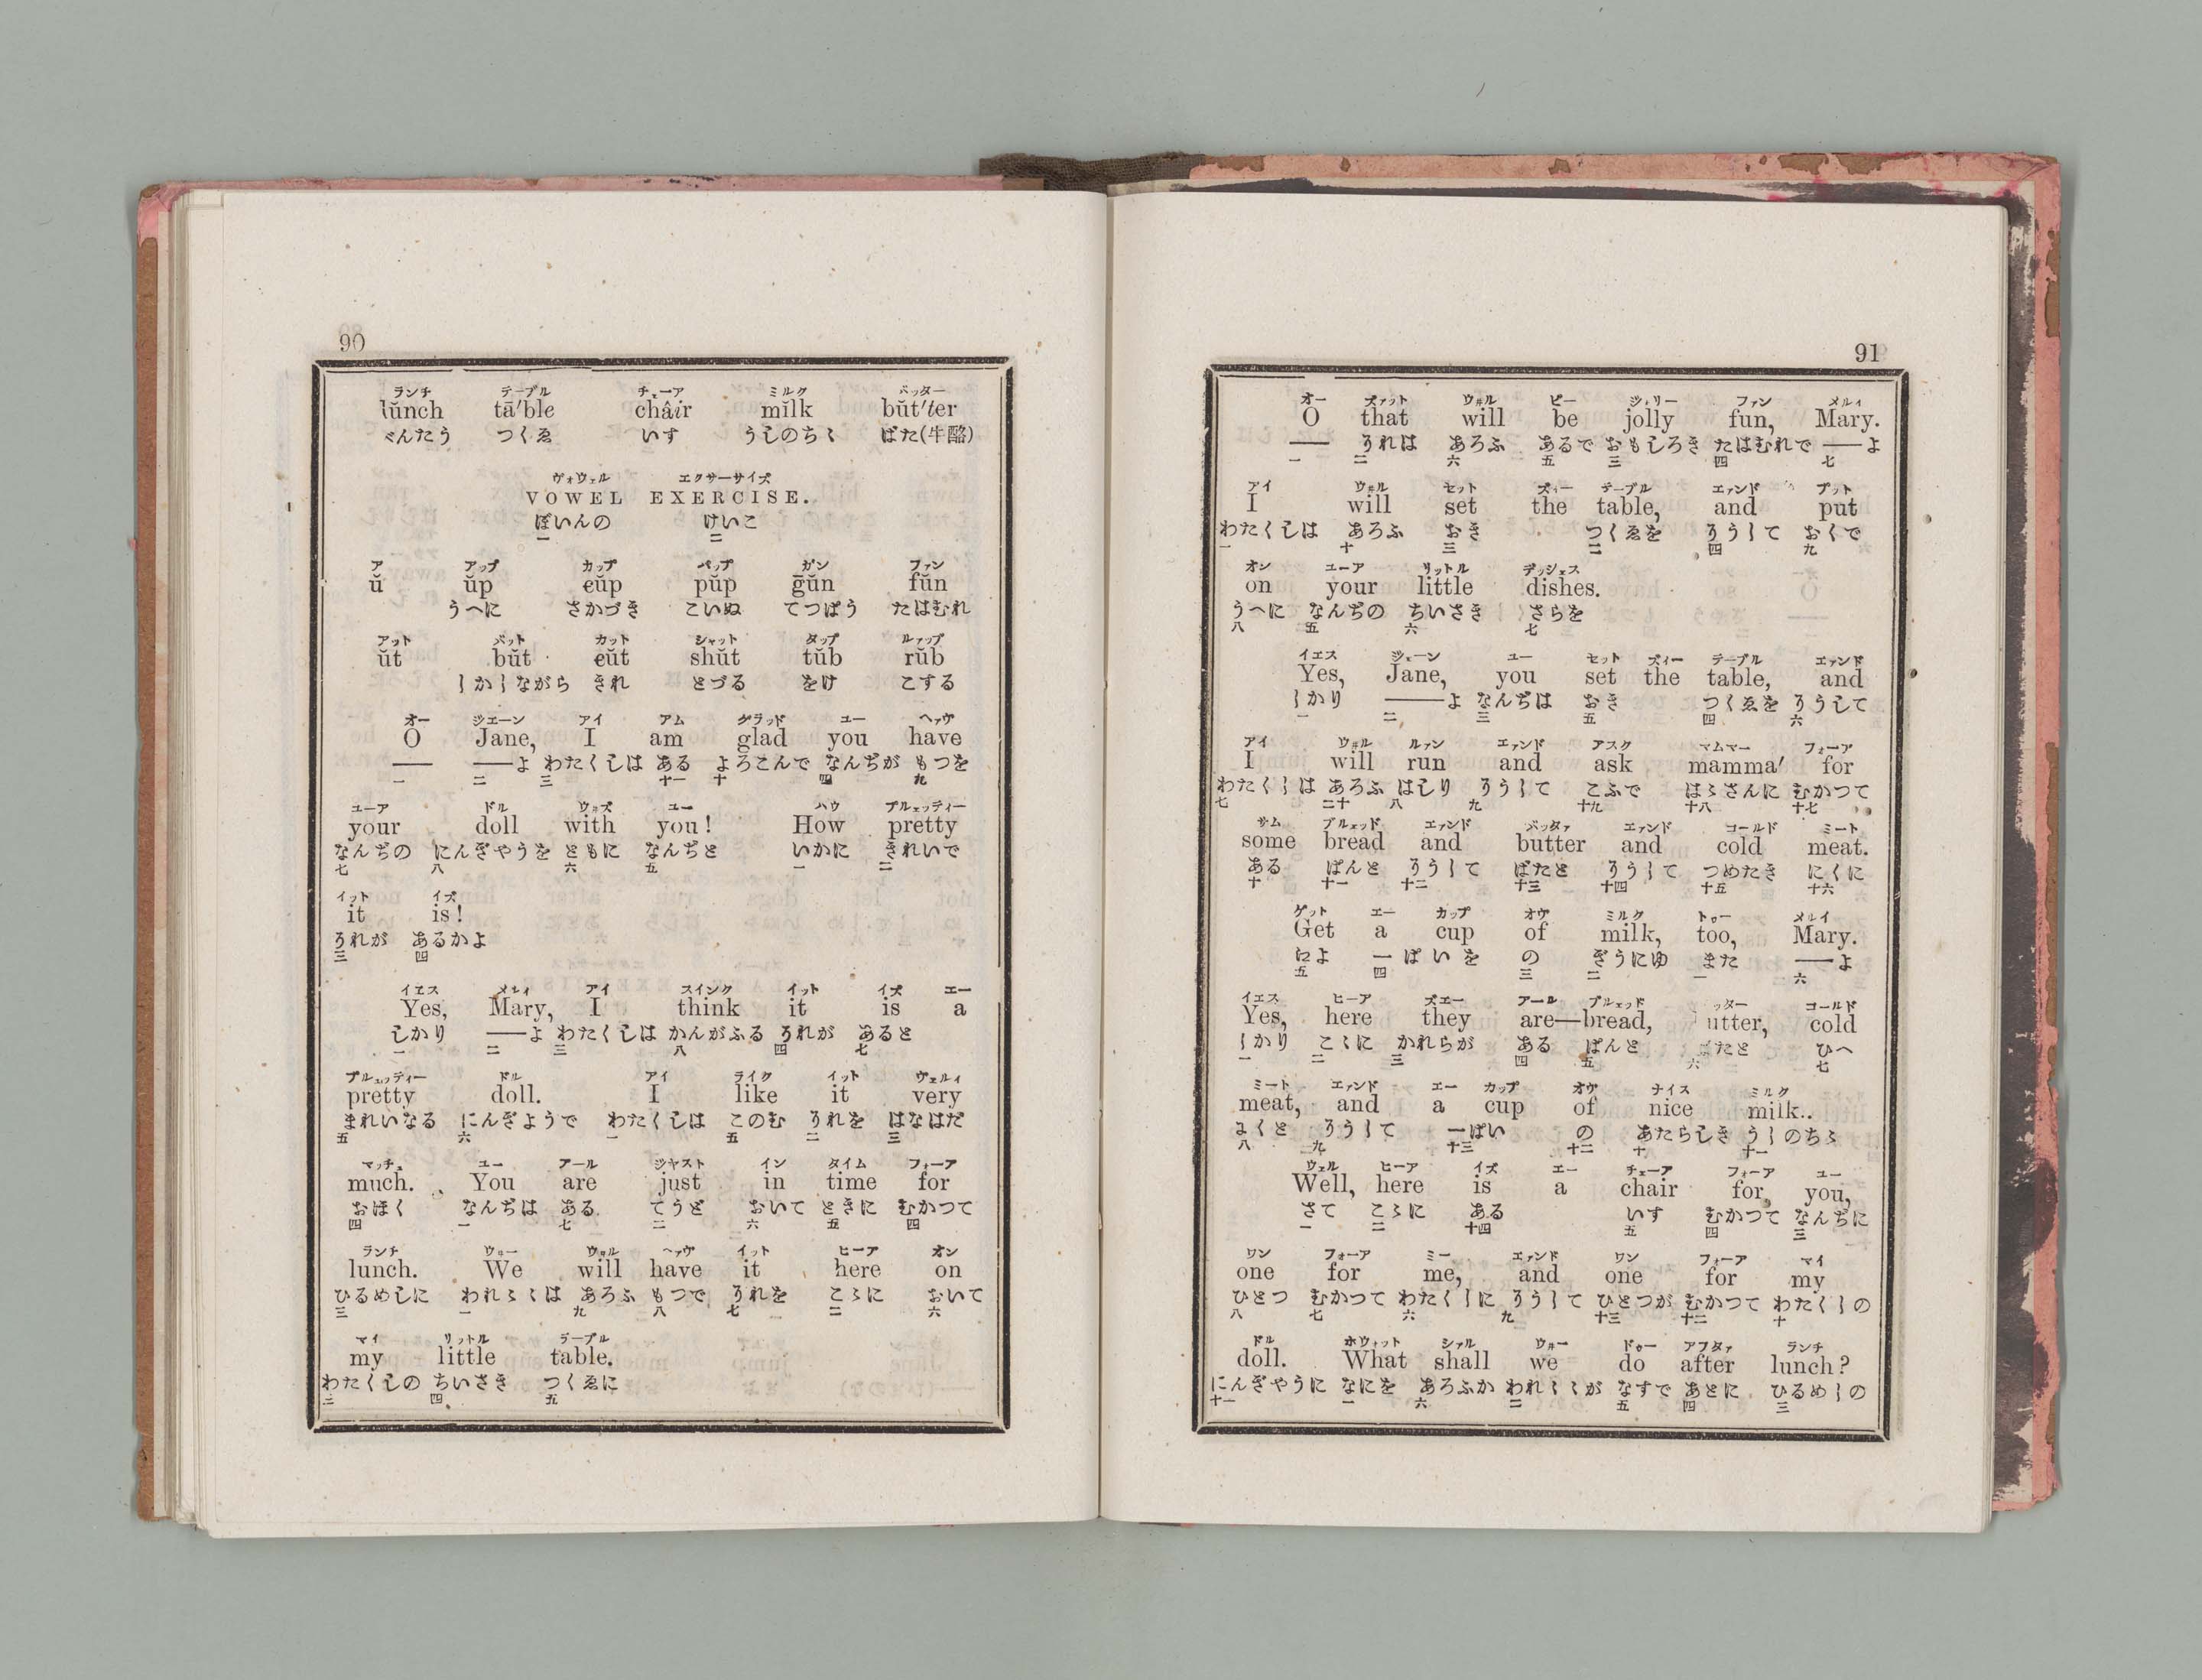 90
ランチ テーブル チェーア ミルク バッター
lŭnch tā′ble châir mĭlk bŭt′ter
べんたう つくゑ いす うしのちゝ ばた(牛酪)
ヴォウェル エクサーサイズ
VOWEL EXERCISE.
ぼいんの けいこ
一 二
ア アップ カップ パップ ガン ファン
ŭ ŭp cŭp pŭp gŭn fŭn
うへに さかづき こいぬ てつぱう たはむれ
アット バット カット シャット タップ ルァップ
ŭt bŭt cŭt shŭt tŭb rŭb
しかしながら きれ とづる をけ こする
オー ジエーン アイ アム グラッド ユー ヘァヴ
O Jane, I am glad you have
—— ——よ わたくしは ある よろこんで なんぢが もつを
一 二 三 十一 十 四 九
ユーア ドル ウ#ズ ユー ハウ プルェッティー
your doll with you! How pretty
なんぢの にんぎやうを ともに なんぢと いかに きれいで
七 八 六 五 一 二
イット イズ
it is!
それが あるかよ
三 四
イエス メルィ アイ スインク イット イズ エー
Yes, Mary, I think it is a
しかり ——よ わたくしは かんがふる それが あると
一 二 三 八 四 七
プルェッティー ドル アイ ライク イット ヴェルィ
pretty doll. I like it very
きれいなる にんぎようで わたくしは このむ それを はなはだ
五 六 一 五 二 三
マッチュ ユー アール ジヤスト イン タイム フォーア
much. You are just in time for
おほく なんぢは ある てうど おいて ときに むかつて
四 一 七 二 六 五 四
ランチ ウィー ウ#ル ヘァヴ イット ヒーア オン
lunch. We will have it here on
ひるめしに われゝゝは あろふ もつで それを こゝに おいて
三 一 九 八 七 二 六
マイ リットル テーブル
my little table.
わたくしの ちいさき つくゑに
三 四 五
91
オー ズァット ウ#ル ビー ジョリー ファン メルィ
O that will be jolly fun, Mary.
—— それは あろふ あるで おもしろき たはむれで ——よ
一 二 六 五 三 四 七
アイ ウ#ル セット ズィー テーブル エァンド プット
I will set the table, and put
わたくしは あろふ おき つくゑを そうして おくで
一 十 三 二 四 九
オン ユーア リットル デッシェス
on your little dishes.
うへに なんぢの ちいさき さらを
八 五 六 七
イエス ジェーン ユー セット ズィー テーブル エァンド
Yes, Jane, you set the table, and
しかり ——よ なんぢは おき つくゑを そうして
一 二 三 五 四 六
アイ ウ#ル ルァン エァンド アスク マムマー フォーア
I will run and ask mamma′ for
わたくしは あろふ はしり そうして こふで はゝさんに むかつて
七 二十 八 九 十九 十八 十七
サム ブルェッド エァンド バッタァ エァンド コールド ミート
some bread and butter and cold meat.
ある ぱんと そうして ばたと そうして つめたき にくに
十 十一 十二 十三 十四 十五 十六
ゲット エー カップ オヴ ミルク トゥー メルイ
Get a cup of milk, too, Mary.
によ 一ぱいを の ぎうにゆ また ——よ
五 四 三 二 一 六
イエス ヒーア ズエー アール ブルェッド ッター コールド
Yes, here they are—bread, utter, cold
しかり こゝに かれらが ある ぱんと たと ひへ
一 二 三 四 五 六 七
ミート エァンド エー カップ オヴ ナイス ミルク
meat, and a cup of nice milk..
くと そうして 一ぱい の あたらしき うしのちゝ
八 九 十三 十二 十 十一
ウェル ヒーア イズ エー チェーア フォーア ユー
Well, here is a chair for you,
さて こゝに ある いす むかつて なんぢに
一 二 十四 五 四 三
ワン フォーア ミー エァンド ワン フォーア マイ
one for me, and one for my
ひとつ むかつて わたくしに そうして ひとつが むかつて わたくしの
八 七 六 九 十三 十二 十
ドル ホウォット シァル ウ#ー ドゥー アフタァ ランチ
doll. What shall we do after lunch?
にんぎやうに なにを あろふか われゝゝが なすで あとに ひるめしの
十一 一 六 二 五 四 三